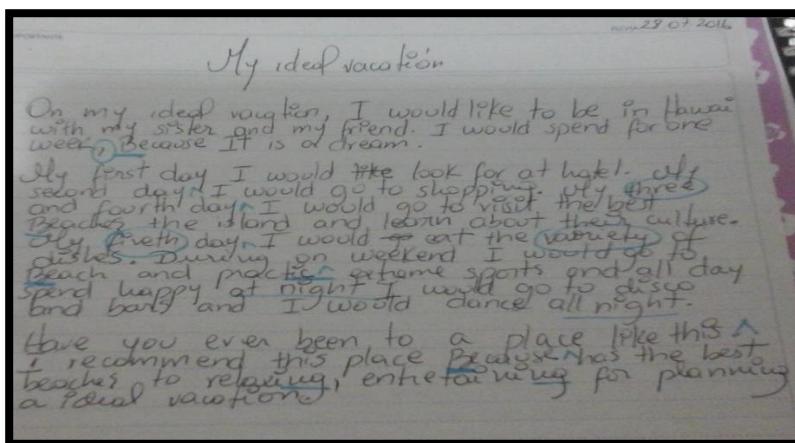 28.07.2016
My ideal vacation
On my ideal vacation, I would like to be in Hawai
with my sister and my friend. I would spend for one
week, Because It is a dream.
My first day I would like look for at hotel. My
second day I would go to shopping. My three
and fourth day I would go to visit the best
Beaches the island and learn about their culture.
My fiveth day I would go eat the variety of
dishes. During on weekend I would go to
Beach and practic extreme sports and all day
spend happy at night I would go to disco
and bars and I would dance all night.
Have you ever been to a place like this
I recommend this place Because has the best
beaches to relaxing, entretaining for planning
a ideal vacation.